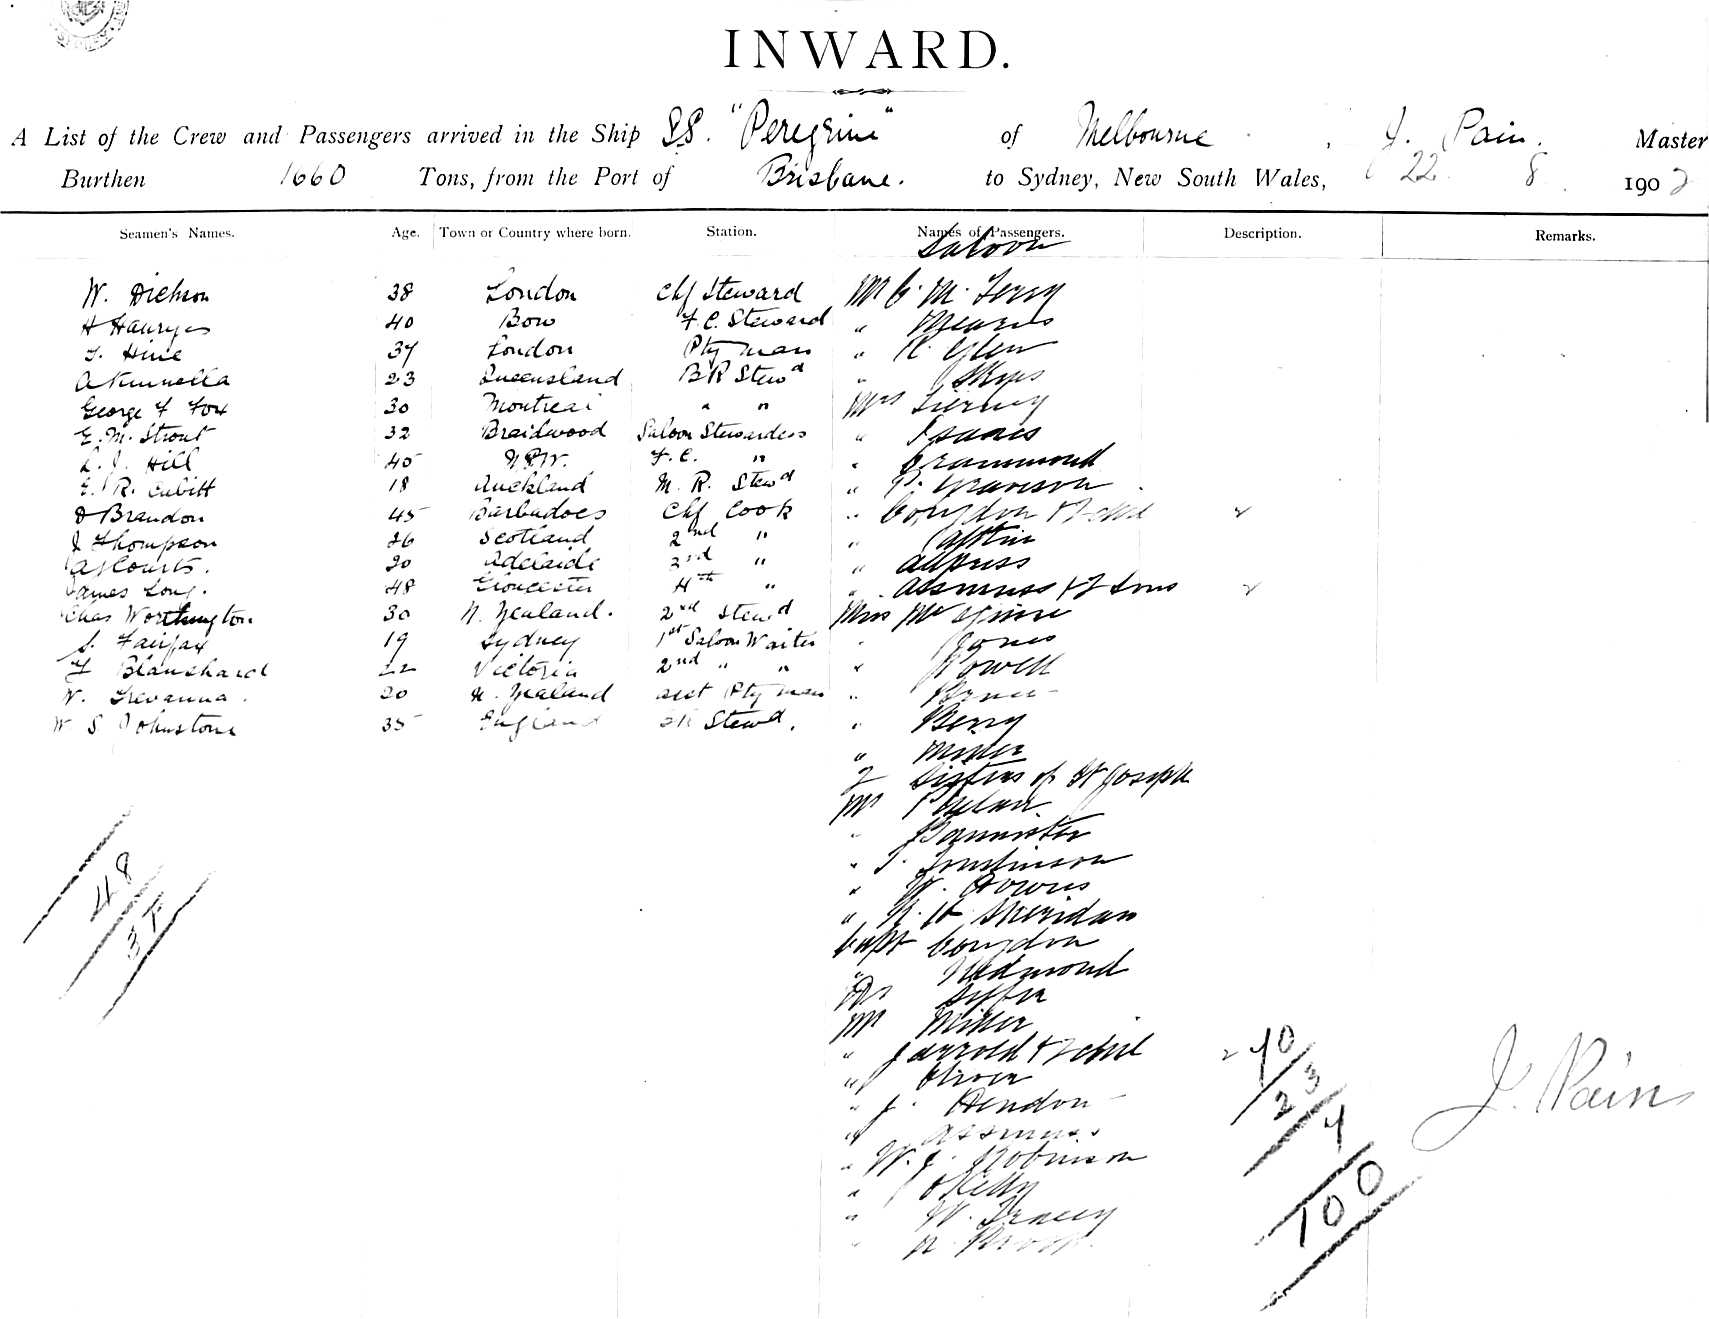 INWARD.
A List of the Crew and Passengers arrived in the Ship SS. "Peregrine" of Melbourne, J. Pain. Master
Burthen 1660 Tons, from the Port of Brisbane. to Sydney, New South Wales, 22 8 1902
Seamen's Names. Age. Town or Country where born. Station. Names of Passengers. Description. Remarks.
Saloon
W. Dickson 38 London Chf Steward Mr C. M. Terry
H 40 Bow F. C. Steward " Mearns
T. Hine 37 London Pty man " R. Glen
A Kunnella 23 Queensland BR Stewd " Skyes
George F Fox 30 Montreal " " Mrs Tierney
E. M. Strout 32 Braidwood Saloon Stewardess " Isaacs
L. J. Hill 45 N.S.W. F. C. " " Drammond
E. R. Cubitt 18 Auckland M. R. Stewd "
D Brandon 45 Barbadoes Chf Cook " Congdon & 2 child 2
J Thompson 26 Scotland 2nd " "
A J Courts. 20 Adelaide 3rd " "
James Long. 48 Gloucester 4th " " Assmuss & 2 sons 2
Chas Worthington 30 N. Zealand. 2nd Stewd Miss
S. Fairfax 19 Sydney 1st Saloon Waiter " Jones
F Blanchard 22 Victoria 2nd " " " Powell
W. Trevanna. 20 N. Zealand asst Pty man "
W S Johnstone 35 England BR Stewd. " Berry
" Miller
2 Sisters of St Joseph
Mr Phelan
" Bannister
" T. Tomlinson
" W. Downs
" N. H. Sheridan
Capt Congdon
" Redmond
Dr
Mr Miller
" Jarrold & 2 child 2
" Oliver
" J. Hendon
" Assmuss
" W. J. Robinson
" J OKelly
" W. Tracey
" N.
48
38
70
23
7
100
J. Pain